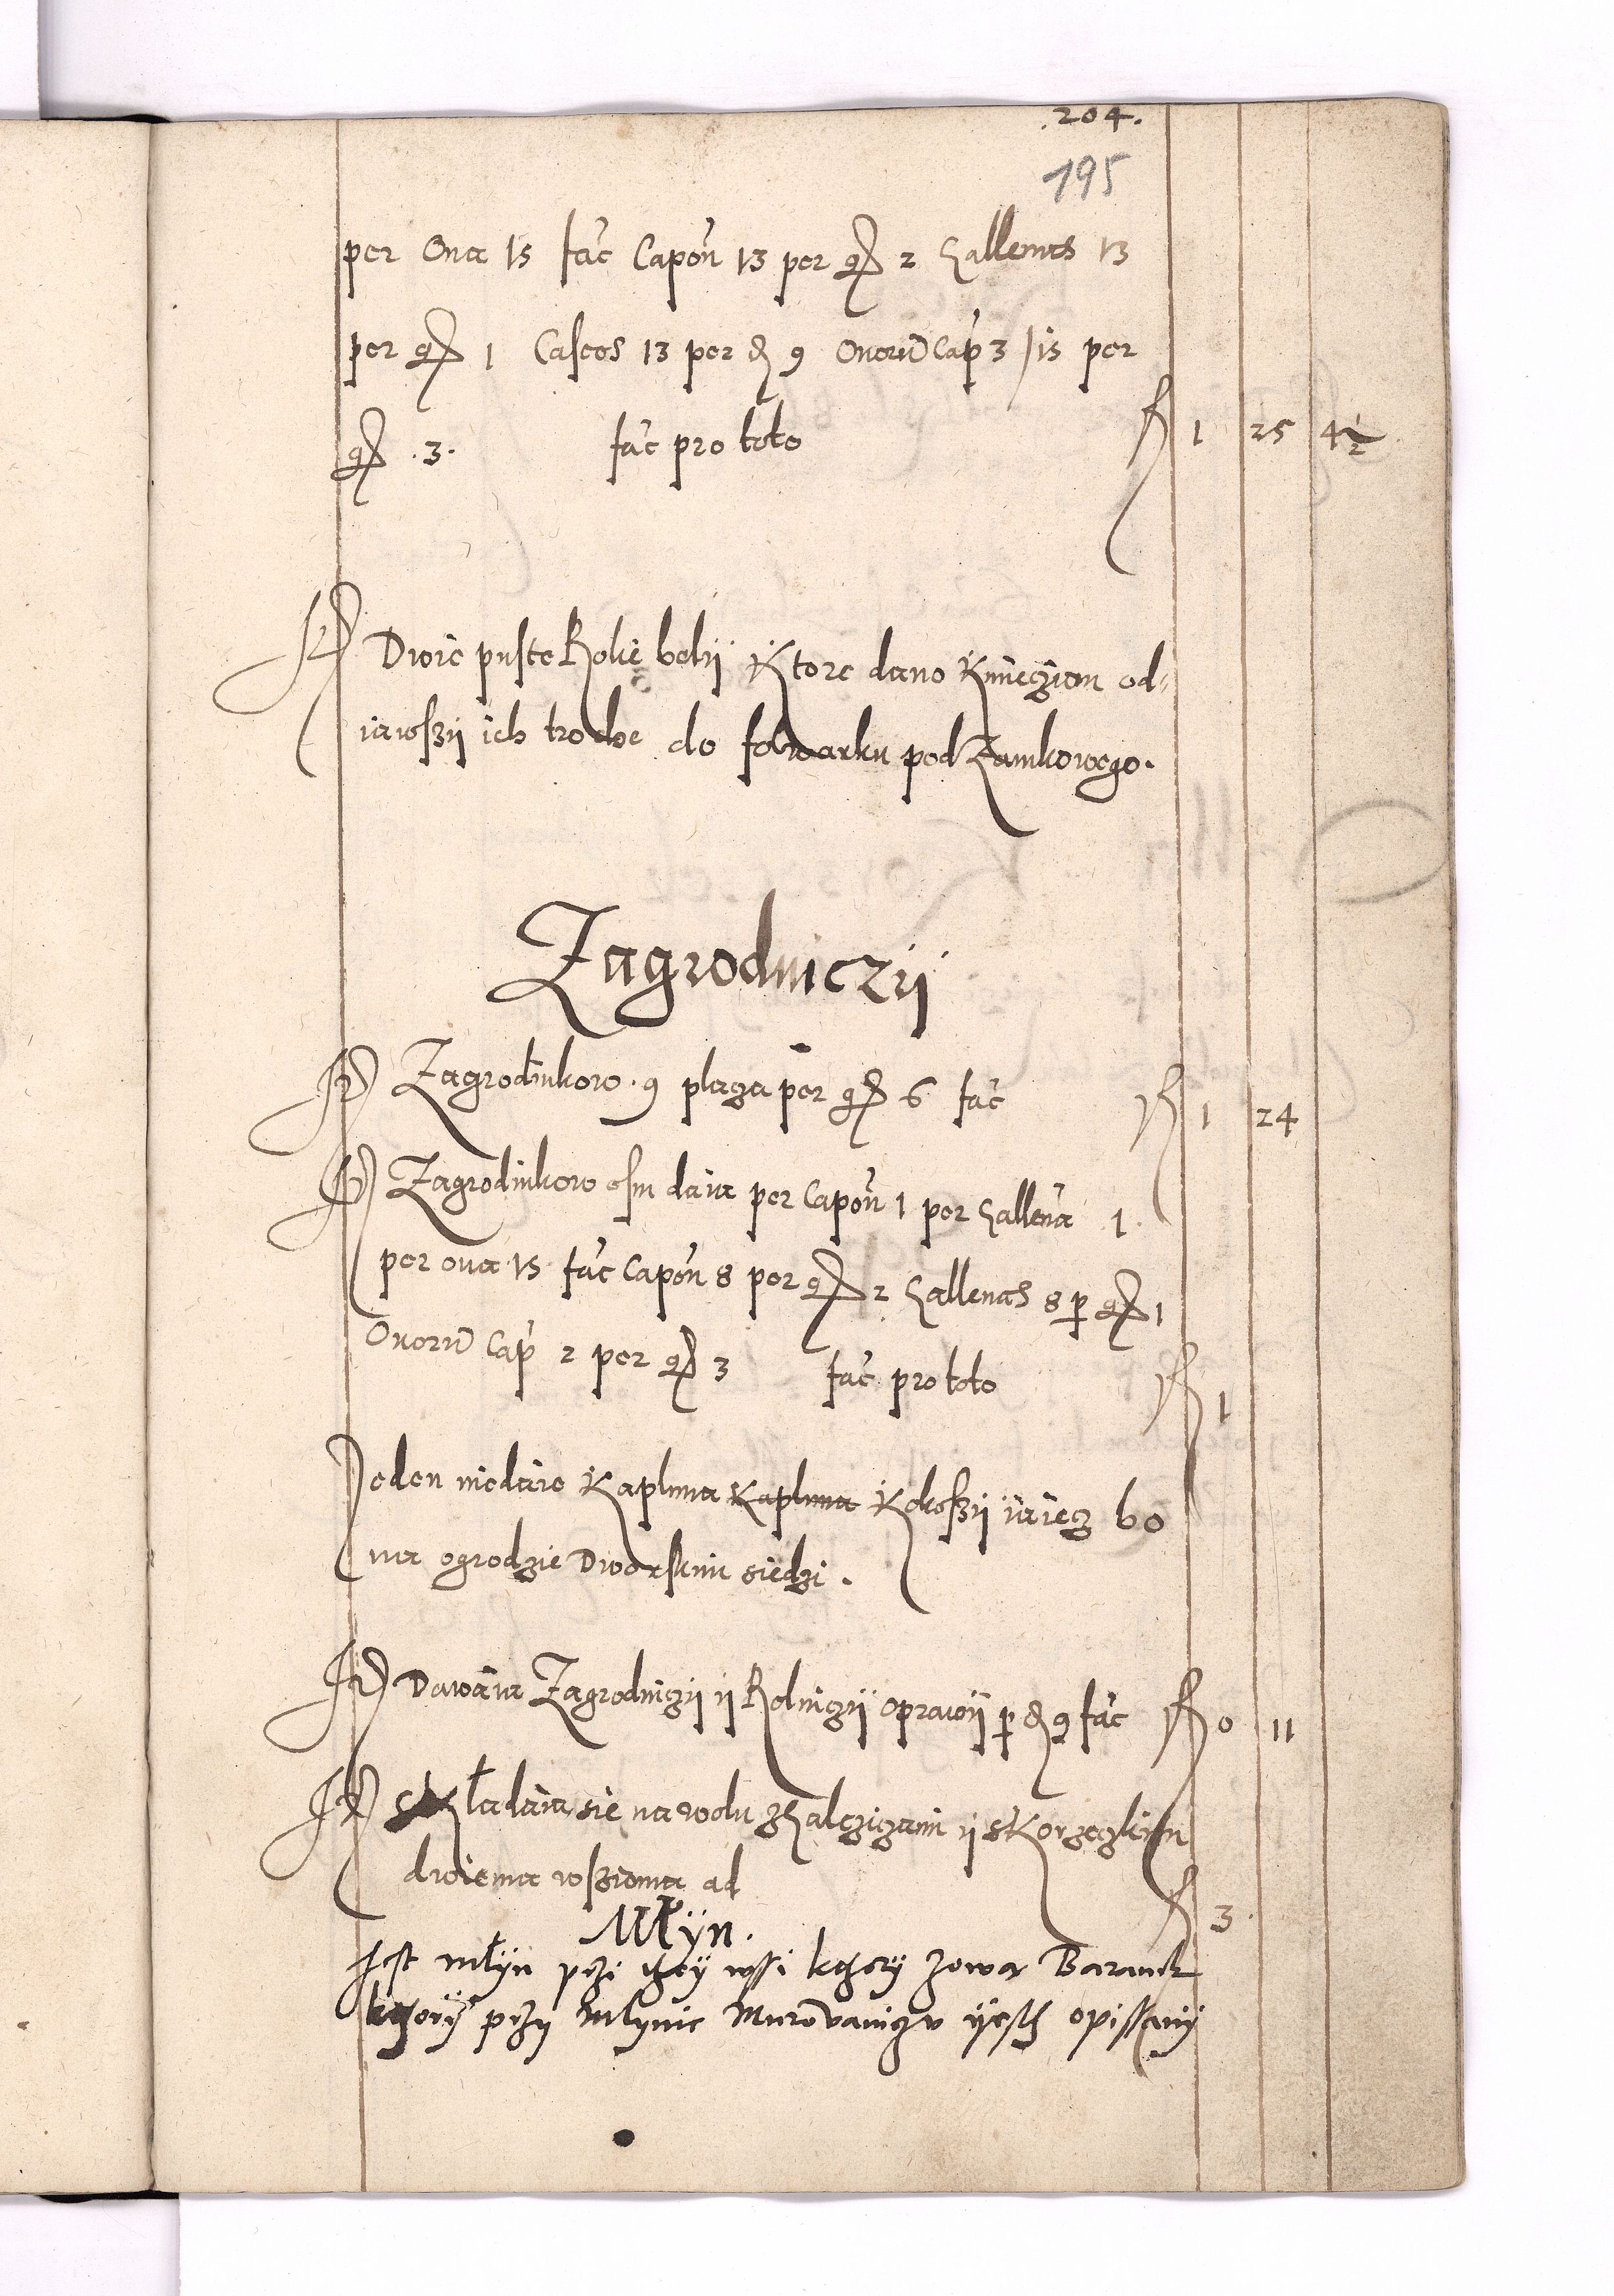 .204.
195
per Ova 15 fac̃ Capon̄ 13 per gr 2 Gallenas 13
per gr 1 Caseos 13 per d 9 Ovorū Cap̄ 3 / 15 per
gr .3. fac̃ pro toto f 1 25 4½
It Dwie puste Rolie belij Ktore dano Kmiecziom od„
iawszij ich troche do folwarku podZamkowego.
Zagrodniczij
It Zagrodnikow .9 placza per gr 6 fac̃ f 1 24
It Zagrodnikow osm daia per Capon̄ 1 per Gallenā 1.
per ova 15 fac̃ Capon̄ 8 per gr 2 Gallenas 8 p gr 1
Ovorū Cap̄ 2 per gr 3 fac̃ pro toto f 1
Jeden niedaie Kapluna Kapluna Kokoszij iaiecz bo
na ogrodzie Dworskim siedzi.
It Dawaia Zagrodniczij ij Rolniczij oprawij p d 9 fac̃ f 0 11
It Składaia sie nawodu zhalczicami ij sKorzeczkim
dwiema wszioma ad f 3.
Młÿn.
Jest młÿn przi theÿ wssi kthorÿ zowa Baranek
kthorÿ przy mlynie Murovaniczu ÿesth opissanÿ